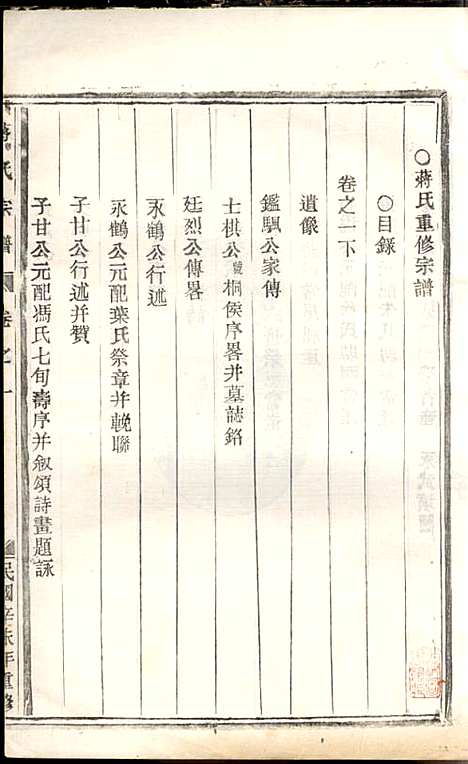 ○蔣氏重修宗譜
○目錄
卷之一下
遺像
鑑騆公家傳
士棋公號桐侯序畧并墓誌銘
廷烈公傳畧
永鶴公行述
永鶴公元配葉氏祭章并輓聯
子甘公行述并贊
子甘公元配馮氏七旬壽序并敘頌詩畫題詠
蔣氏宗譜 卷之一 民國辛未年重修